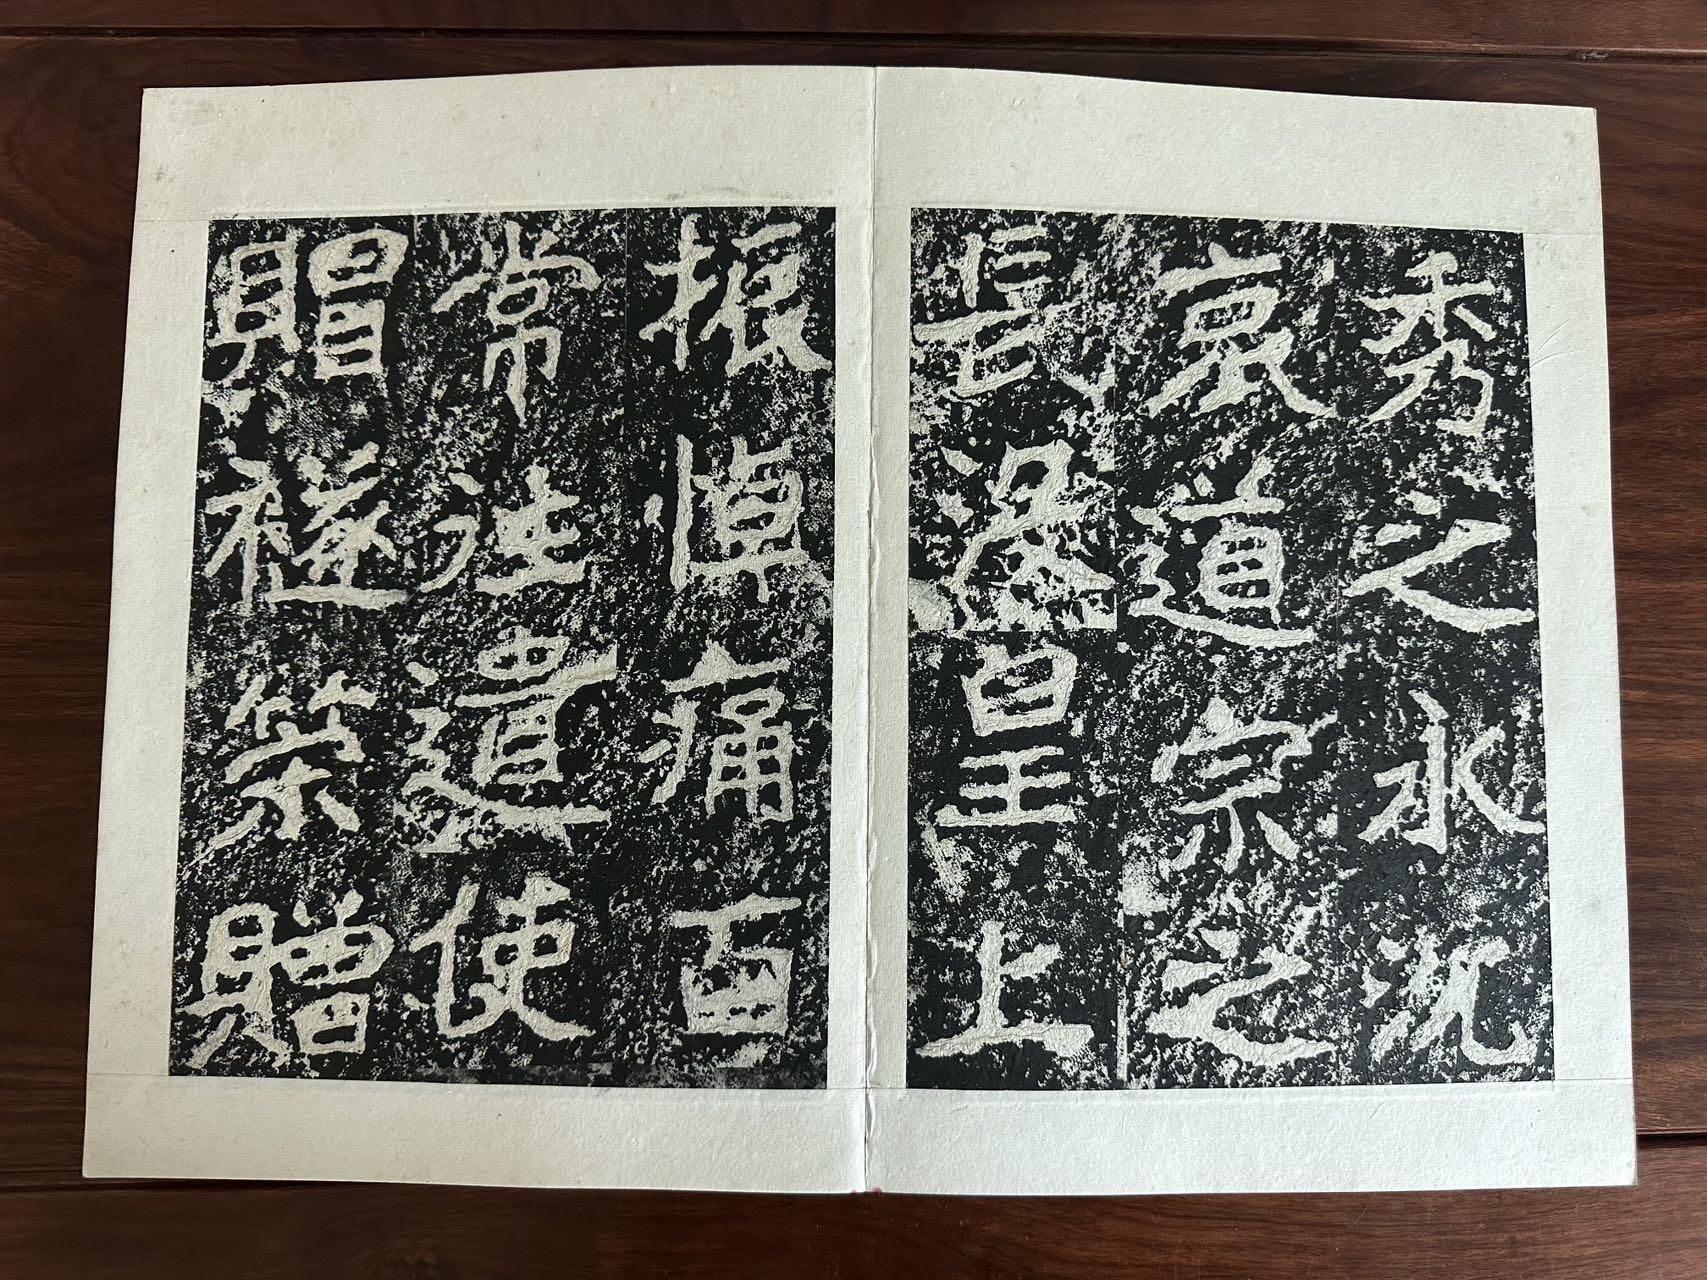 秀之永沉
哀道宗之
長没皇上
振悼痛百
常往遣使
賵襚策贈